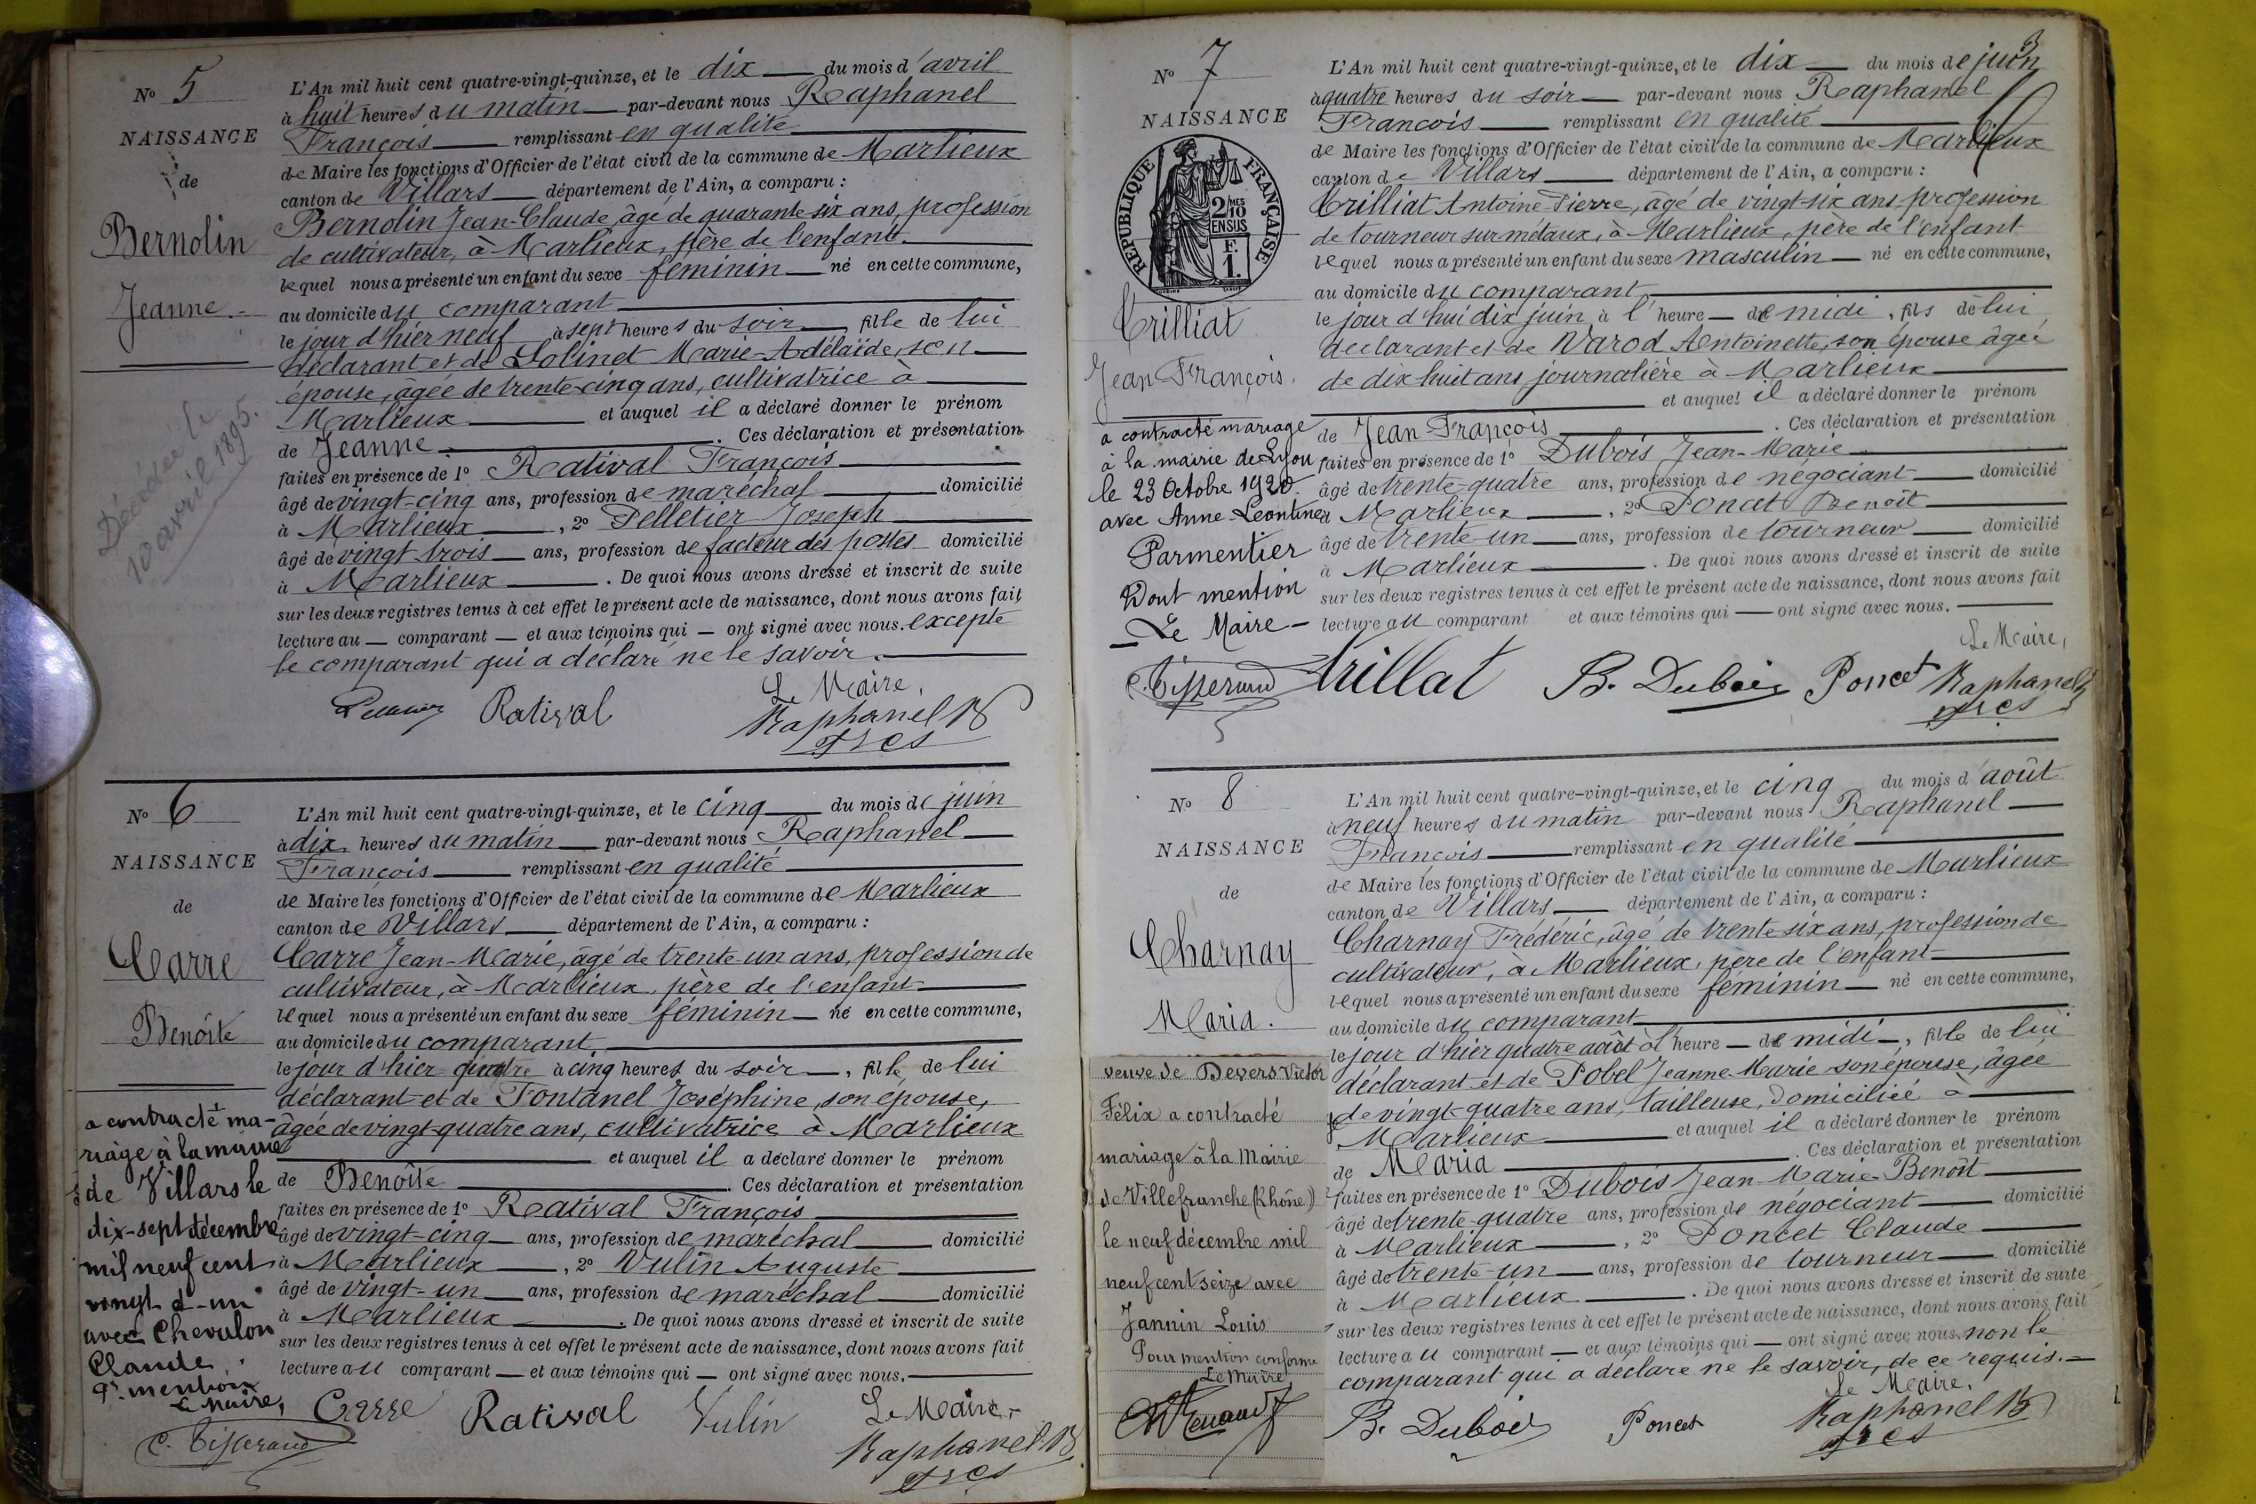 No 5
NAISSANCE
de
Bernolin
Jeanne.
Décédée le
10 avril 1895.
L'An mil huit cent quatre-vingt-quinze, et le dix du mois d'avril
à huit heures du matin par-devant nous Raphanel
François remplissant en qualité
de Maire les fonctions d'Officier de l'état civil de la commune de Marlieux
canton de Villars département de l'Ain, a comparu :
Bernolin Jean-Claude, âgé de quarante-six ans, profession
de cultivateur, à Marlieux, père de l'enfant.
lequel nous a présenté un enfant du sexe féminin né en cette commune,
au domicile du comparant
le jour d'hier neuf à sept heures du soir, fille de lui
déclarant et de Solinet Marie-Adélaïde, son
épouse, âgée de trente-cinq ans, cultivatrice à
Marlieux et auquel il a déclaré donner le prénom
de Jeanne. Ces déclaration et présentation
faites en présence de 1° Ratival François
âgé de vingt-cinq ans, profession de maréchal domicilié
à Marlieux, 2° Pelletier Joseph
âgé de vingt trois ans, profession de facteur des postes domicilié
à Marlieux. De quoi nous avons dressé et inscrit de suite
sur les deux registres tenus à cet effet le présent acte de naissance, dont nous avons fait
lecture au comparant et aux témoins qui ont signé avec nous. excepté
le comparant qui a déclaré ne le savoir.
Ratival
Le Maire,
Raphanel B
fres
No 6
NAISSANCE
de
Carre
Benoîte
a contracté ma-
riage à la mairie
de Villars le
dix-sept décembre
mil neuf cent
vingt-d-un
avec Chevalon
Claude.
Pr. mention
Le Maire,
C. Tisserand
L'An mil huit cent quatre-vingt-quinze, et le cinq du mois de juin
à dix heures du matin par-devant nous Raphanel
François remplissant en qualité
de Maire les fonctions d'Officier de l'état civil de la commune de Marlieux
canton de Villars département de l'Ain, a comparu :
Carre Jean-Marie, âgé de trente un ans, profession de
cultivateur, à Marlieux, père de l'enfant
lequel nous a présenté un enfant du sexe féminin né en cette commune,
au domicile du comparant
le jour d'hier quatre à cinq heures du soir, fille de lui
déclarant et de Fontanel Joséphine, son épouse,
âgée de vingt-quatre ans, cultivatrice à Marlieux
et auquel il a déclaré donner le prénom
de Benoîte. Ces déclaration et présentation
faites en présence de 1° Ratival François
âgé de vingt-cinq ans, profession de maréchal domicilié
à Marlieux, 2° Vulin Auguste
âgé de vingt-un ans, profession de maréchal domicilié
à Marlieux. De quoi nous avons dressé et inscrit de suite
sur les deux registres tenus à cet effet le présent acte de naissance, dont nous avons fait
lecture au comparant et aux témoins qui ont signé avec nous.
Carre Ratival Vulin Le Maire,
Raphanel B
fres
3
No 7
NAISSANCE
RÉPUBLIQUE FRANÇAISE
2/10 MES
EN SUS
F.
1.
Trilliat
Jean François.
a contracté mariage
à la mairie de Lyon
le 23 Octobre 1920.
avec Anne-Leontine
Parmentier
Dont mention
Le Maire
C. Tisserand
L'An mil huit cent quatre-vingt-quinze, et le dix du mois de juin
à quatre heures du soir par-devant nous Raphanel
François remplissant en qualité
de Maire les fonctions d'Officier de l'état civil de la commune de Marlieux
canton de Villars département de l'Ain, a comparu :
Trilliat Antoine-Pierre, âgé de vingt-six ans, profession
de tourneur sur métaux, à Marlieux, père de l'enfant
lequel nous a présenté un enfant du sexe masculin né en cette commune,
au domicile du comparant,
le jour d'hui dix juin à l'heure de midi, fils de lui
déclarant et de Varod Antoinette, son épouse âgée
de dix-huit ans journalière à Marlieux
et auquel il a déclaré donner le prénom
de Jean François. Ces déclaration et présentation
faites en présence de 1° Dubois Jean-Marie
âgé de trente-quatre ans, profession de négociant domicilié
à Marlieux, 2° Poncet Benoît
âgé de trente-un ans, profession de tourneur domicilié
à Marlieux. De quoi nous avons dressé et inscrit de suite
sur les deux registres tenus à cet effet le présent acte de naissance, dont nous avons fait
lecture au comparant et aux témoins qui ont signé avec nous.
Le Maire,
Trillat B. Dubois Poncet Raphanel B
fres
No 8
NAISSANCE
de
Charnay
Maria.
veuve de Devers Victor
Félix a contracté
mariage à la Mairie
de Villefranche (Rhône)
le neuf décembre mil
neuf cent seize avec
Jannin Louis
Pour mention conforme
Le Maire,
L'An mil huit cent quatre-vingt-quinze, et le cinq du mois d'août
à neuf heures du matin par-devant nous Raphanel
François remplissant en qualité
de Maire les fonctions d'Officier de l'état civil de la commune de Marlieux
canton de Villars département de l'Ain, a comparu :
Charnay Frédéric, âgé de trente six ans, profession de
cultivateur, à Marlieux, père de l'enfant
lequel nous a présenté un enfant du sexe féminin né en cette commune,
au domicile du comparant
le jour d'hier quatre août à l'heure de midi, fille de lui
déclarant et de Pobel Jeanne-Marie son épouse, âgée
de vingt-quatre ans, tailleuse, domiciliée à
Marlieux et auquel il a déclaré donner le prénom
de Maria. Ces déclaration et présentation
faites en présence de 1° Dubois Jean-Marie-Benoît
âgé de trente-quatre ans, profession de négociant domicilié
à Marlieux, 2° Poncet Claude
âgé de trente-un ans, profession de tourneur domicilié
à Marlieux. De quoi nous avons dressé et inscrit de suite
sur les deux registres tenus à cet effet le présent acte de naissance, dont nous avons fait
lecture au comparant et aux témoins qui ont signé avec nous, non le
comparant qui a déclaré ne le savoir, de ce requis.
Le Maire,
B. Dubois Poncet Raphanel B
fres